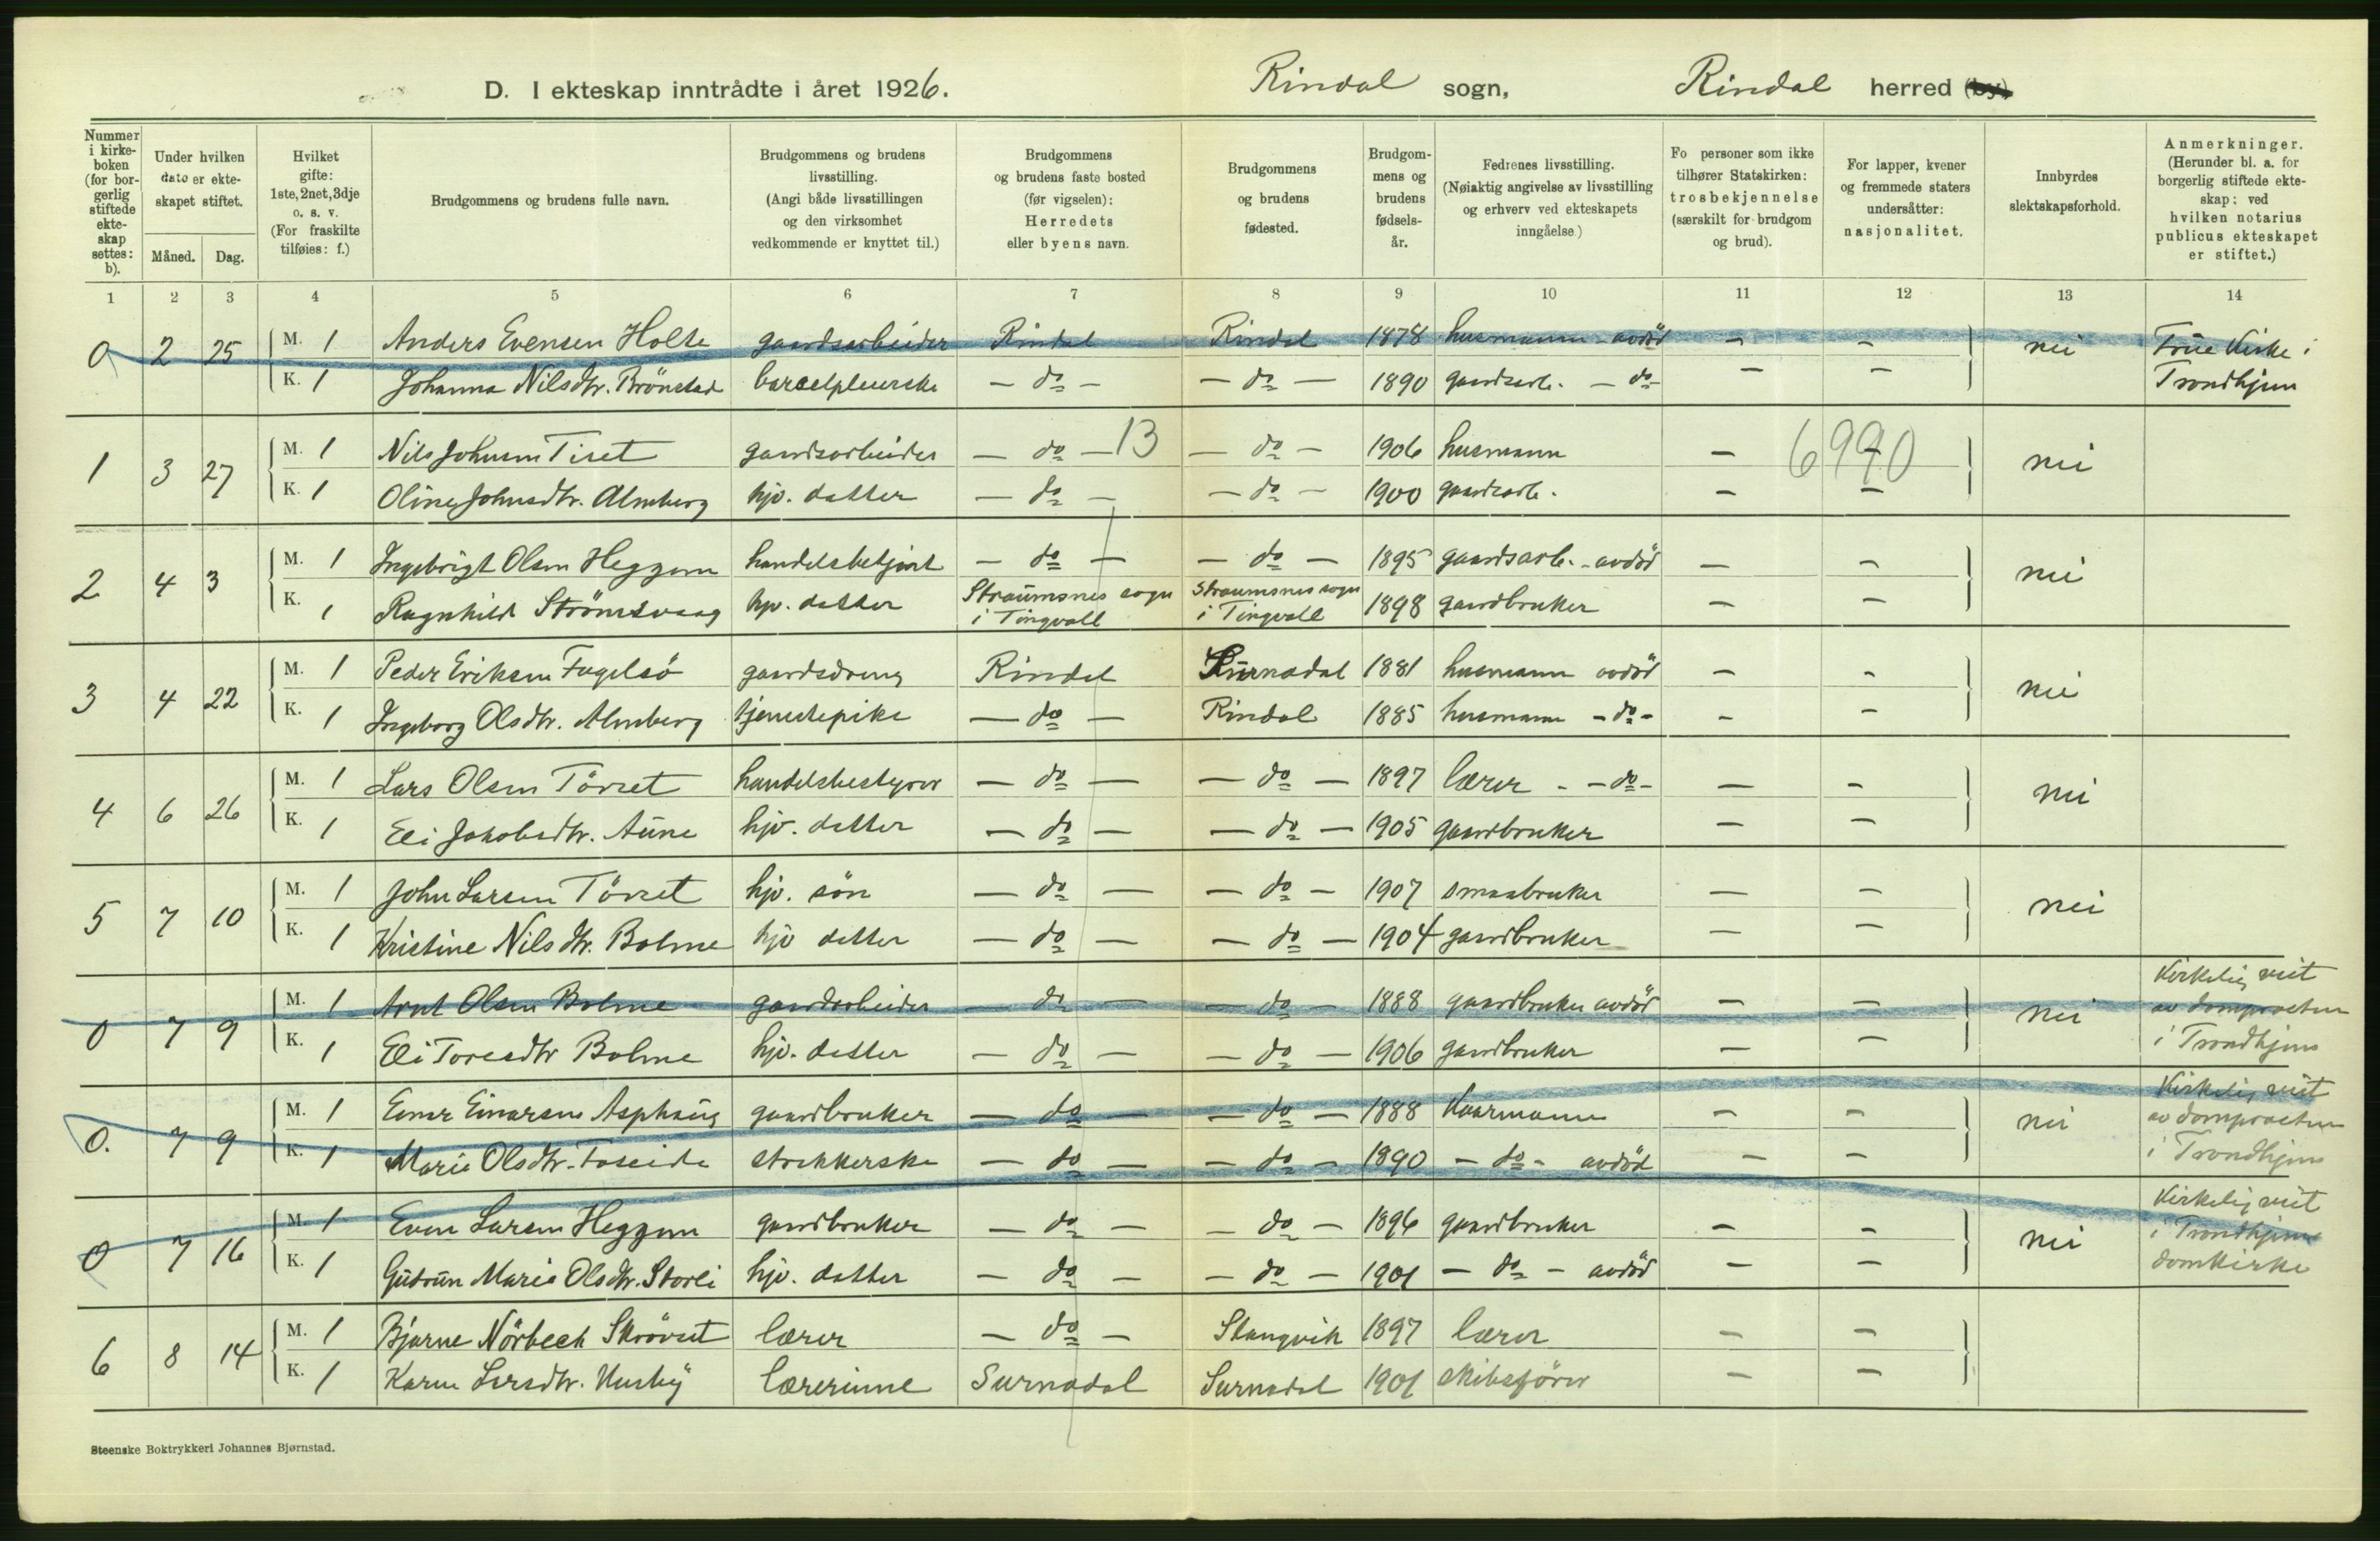 D. I ekteskap inntrådte i året 1926. Rindal sogn, Rindal herred (by).
Nummer i kirke-boken (for bor-gerlig stiftede ekte-skap settes: b).
Under hvilken dato er ekte-skapet stiftet.
Måned. Dag.
Hvilket gifte: 1ste, 2net, 3dje o. s. v. (For fraskilte tilføies: f.)
Brudgommens og brudens fulle navn.
Brudgommens og brudens livsstilling. (Angi både livsstillingen og den virksomhet vedkommende er knyttet til.)
Brudgommens og brudens faste bosted (før vigselen): Herredets eller byens navn.
Brudgommens og brudens fødested.
Brudgom-mens og brudens fødsels-år.
Fedrenes livsstilling. (Nøiaktig angivelse av livsstilling og erhverv ved ekteskapets inngåelse.)
Fo personer som ikke tilhører Statskirken: trosbekjennelse (særskilt for brudgom og brud).
For lapper, kvener og fremmede staters undersåtter: nasjonalitet.
Innbyrdes slektskapsforhold.
Anmerkninger. (Herunder bl. a. for borgerlig stiftede ekte-skap: ved hvilken notarius publicus ekteskapet er stiftet.)
1 2 3 4 5 6 7 8 9 10 11 12 13 14
0 2 25 M. 1 Anders Evensen Holte gaardsarbeider Rindal Rindal 1878 husmann - avdöd - - nei Frue Kirke i
K. 1 Johanna Nilsdtr. Brönstad barselpleierske - do - - do - 1890 gaardsarb. - do - - - Trondhjem
1 3 27 M. 1 Nils Johnsen Tiset gaardsarbeider - do - 13 - do - 1906 husmann - 6990 - nei
K. 1 Oline Johnsdtr. Almberg hjv. datter - do - - do - 1900 gaardsarb. - -
2 4 3 M. 1 Ingebrigt Olsen Heggem handelsbetjent - do - - do - 1895 gaardsarb. - avdöd - - nei
K. 1 Ragnhild Strömsvaag hjv. datter Straumsnes sogn i Tingvoll Straumsnes sogn i Tingvoll 1898 gaardbruker - -
3 4 22 M. 1 Peder Eriksen Fugelsö gaardsdreng Rindal Surnadal 1881 husmann avdöd - - nei
K. 1 Ingeborg Olsdtr. Almberg tjenestepike - do - Rindal 1885 husmann - do - - -
4 6 26 M. 1 Lars Olsen Törset handelsbestyrer - do - - do - 1897 lærer - - do - - - nei
K. 1 Eli Jakobsdtr. Aune hjv. datter - do - - do - 1905 gaardbruker - -
5 7 10 M. 1 John Larsen Törset hjv. sön - do - - do - 1907 smaabruker - - nei
K. 1 Kristine Nilsdtr. Bolme hjv datter - do - - do - 1904 gaardbruker - -
0 7 9 M. 1 Arnt Olsen Bolme gaardarbeider - do - - do - 1888 gaardbruker avdöd - - nei Kirkelig viet av domprosten
K. 1 Eli Toresdtr Bolme hjv. datter - do - - do - 1906 gaardbruker - - i Trondhjem
0. 7 9 M. 1 Einar Einarsen Asphaug gaardbruker - do - - do - 1888 Kaarmann - - nei Kirkelig viet av domprosten
K. 1 Marie Olsdtr. strikkerske - do - - do - 1890 - do - avdöd - - i Trondhjem
0 7 16 M. 1 Even Larsen Heggem gaardbruker - do - - do - 1896 gaardbruker - - nei Kirkelig viet i Trondhjems
K. 1 Gudrun Marie Olsdtr. Storli hjv. datter - do - - do - 1901 - do - avdöd - - domkirke
6 8 14 M. 1 Bjarne Nörbech Skrövset lærer - do - Stangvik 1897 lærer - -
K. 1 Karen Larsdtr. Husby lærerinne Surnadal Surnadal 1901 skibsförer - -
Steenske Boktrykkeri Johannes Bjørnstad.